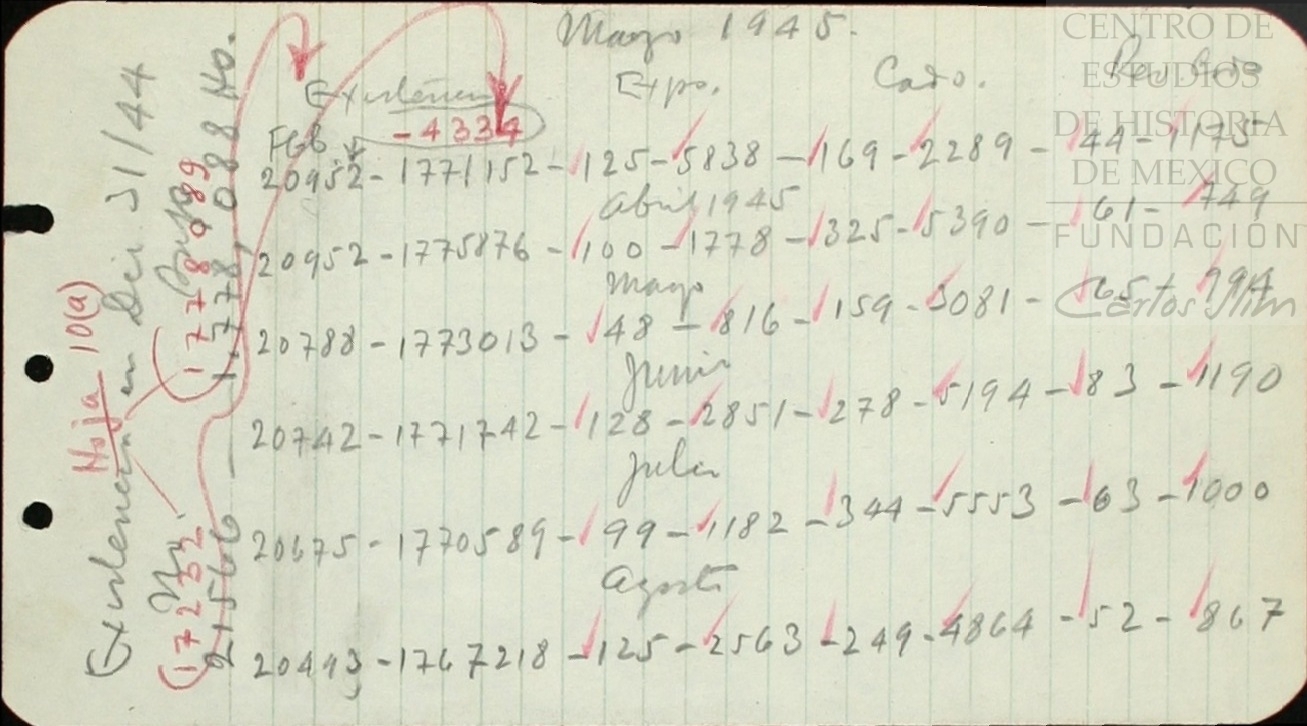 Marzo 1945.
Existencia Expo. Cado. Recibo
FGB - 4334
20952 - 1771152 - 125 - 5838 - 169 - 2289 - 44 - 1175
Abril 1945
20952 - 1775876 - 100 - 1778 - 325 - 5390 - 61 - 749
Mayo
20788 - 1773013 - 48 - 816 - 159 - 3081 - 65 - 994
Junio
20742 - 1771742 - 128 - 2851 - 278 - 5194 - 83 - 1190
Julio
20675 - 1770589 - 99 - 1182 - 344 - 5553 - 63 - 1000
Agosto
20493 - 1767218 - 125 - 2563 - 249 - 4864 - 52 - 867
Hoja 10(a)
Existencia en Dic. 31/44
(17232
(1778089
21566 — 1.778,088 Ho.
CENTRO DE
ESTUDIOS
DE HISTORIA
DE MEXICO
FUNDACIÓN
Carlos Slim